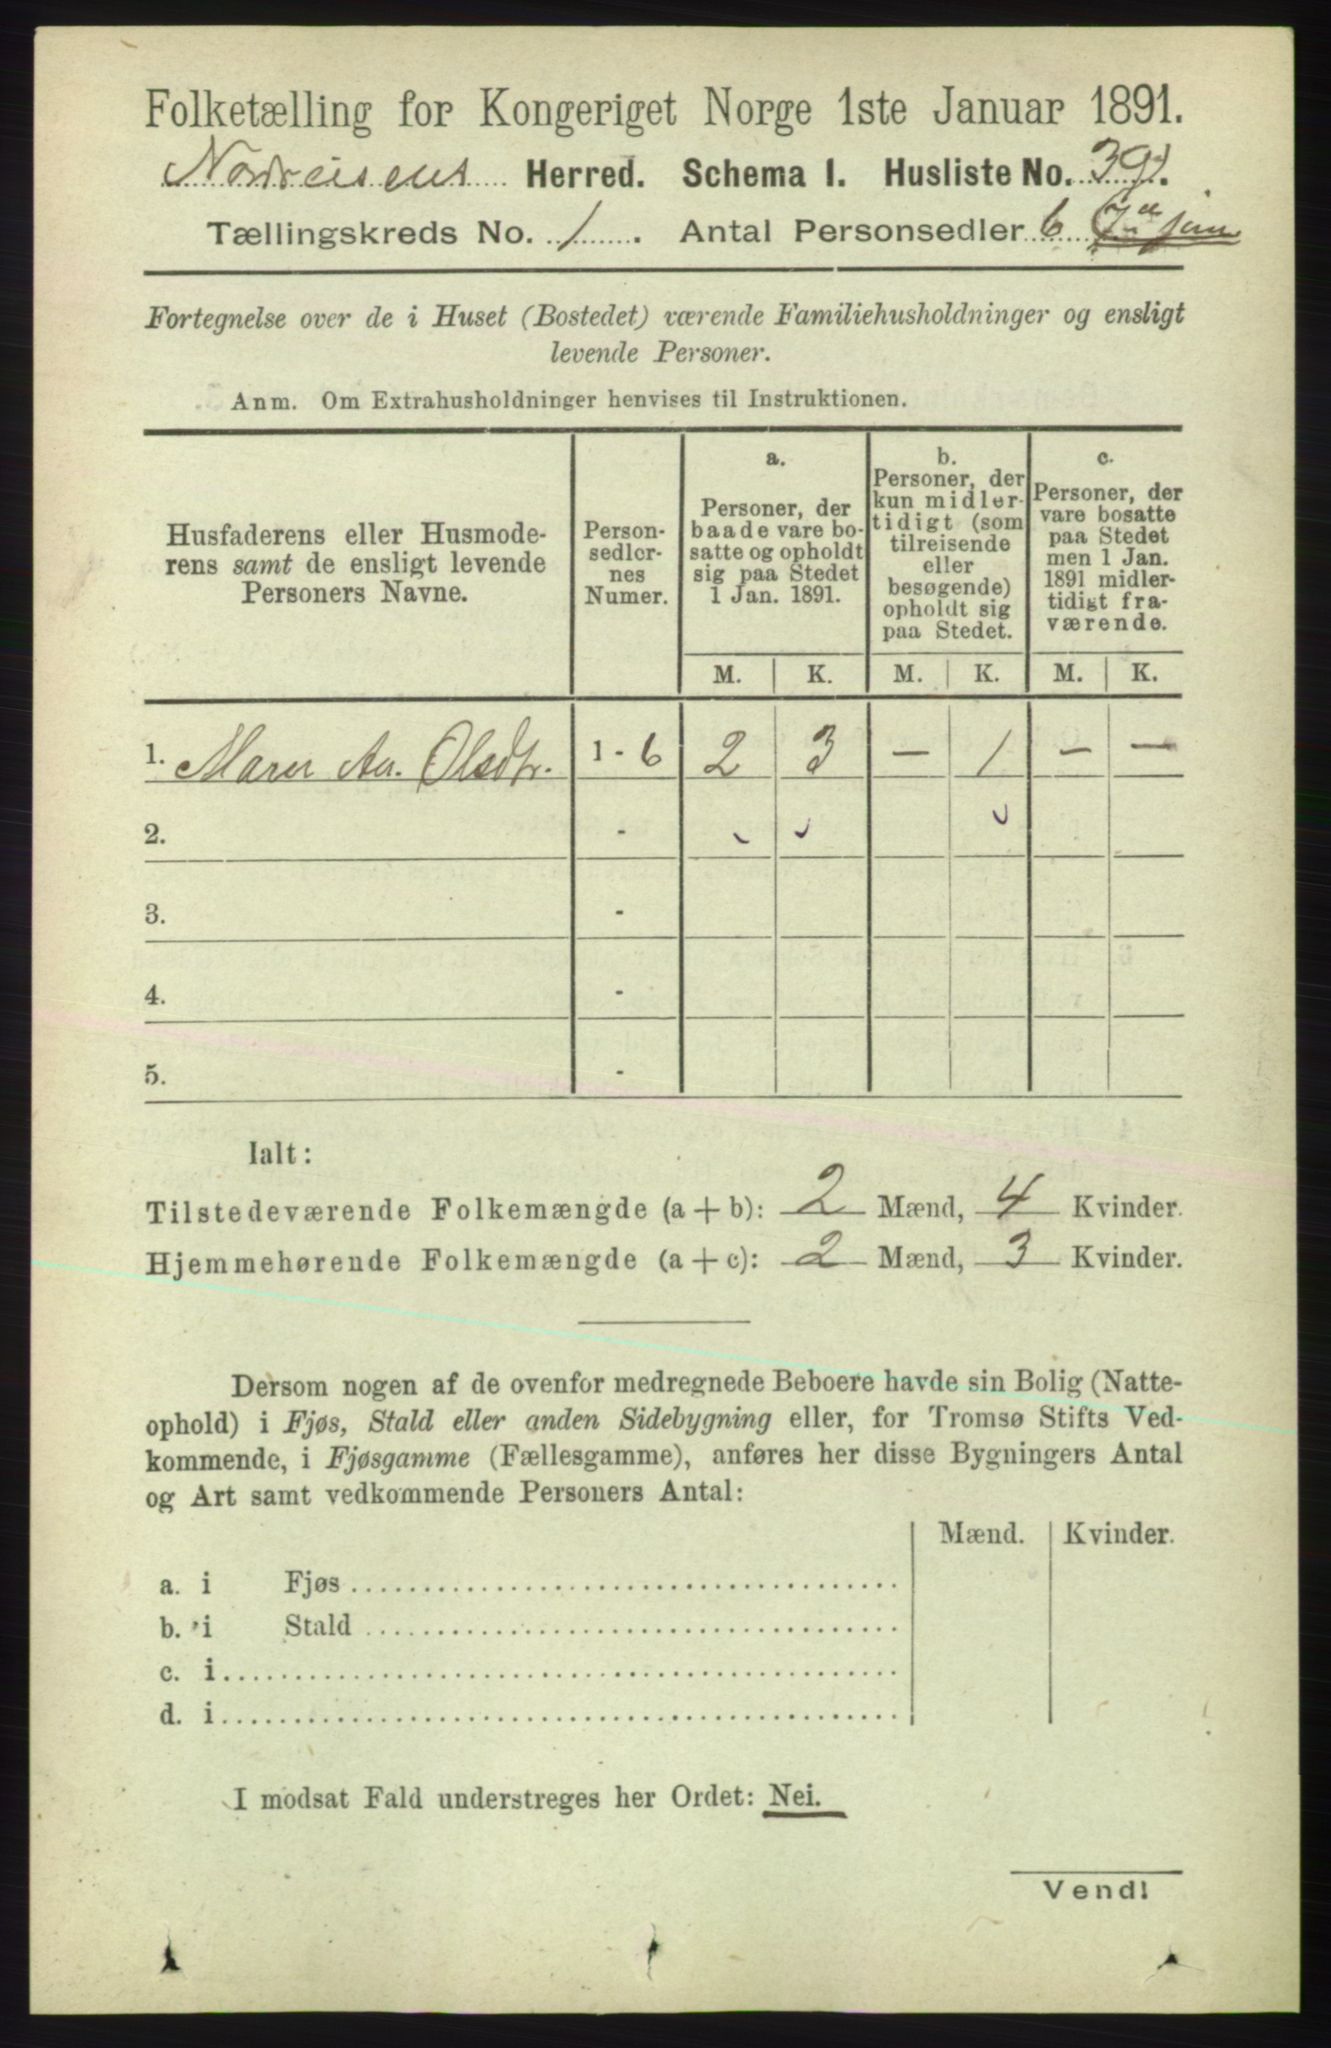 Folketælling for Kongeriget Norge 1ste Januar 1891.
Nordreisens Herred. Schema I. Husliste No. 39.
Tællingskreds No. 1. Antal Personsedler 6
Fortegnelse over de i Huset (Bostedet) værende Familiehusholdninger og ensligt
levende Personer.
Anm. Om Extrahusholdninger henvises til Instruktionen.
Husfaderens eller Husmode-
rens samt de ensligt levende
Personers Navne.
Person-
sedler-
nes
Numer.
a.
Personer, der
baade vare bo-
satte og opholdt
sig paa Stedet
1 Jan. 1891.
b.
Personer, der
kun midler-
tidigt (som
tilreisende
eller
besøgende)
opholdt sig
paa Stedet.
c.
Personer, der
vare bosatte
paa Stedet
men 1 Jan.
1891 midler-
tidigt fra-
værende.
M. K. M. K. M. K.
1. Olsdtr. 1 - 6 2 3 — 1 — —
2. -
3. -
4. -
5. -
Ialt:
Tilstedeværende Folkemængde (a + b): 2 Mænd, 4 Kvinder.
Hjemmehørende Folkemængde (a + c): 2 Mænd, 3 Kvinder.
Dersom nogen af de ovenfor medregnede Beboere havde sin Bolig (Natte-
ophold) i Fjøs, Stald eller anden Sidebygning eller, for Tromsø Stifts Ved-
kommende, i Fjøsgamme (Fællesgamme), anføres her disse Bygningers Antal
og Art samt vedkommende Personers Antal:
Mænd. Kvinder.
a. i Fjøs
b. i Stald
c. i
d. i
I modsat Fald understreges her Ordet: Nei.
Vend!